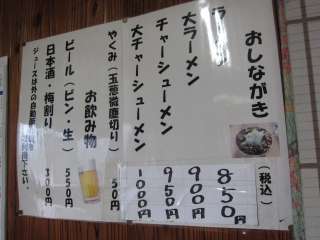 おしながき
(税込)
ラーメン 850円
大ラーメン 900円
チャーシューメン 950円
大チャーシューメン 1000円
やくみ(玉葱微塵切り) 50円
お飲み物
ビール(ビン・生) 550円
日本酒・梅割り 300円
ジュースは外の自動販売機をご利用下さい。